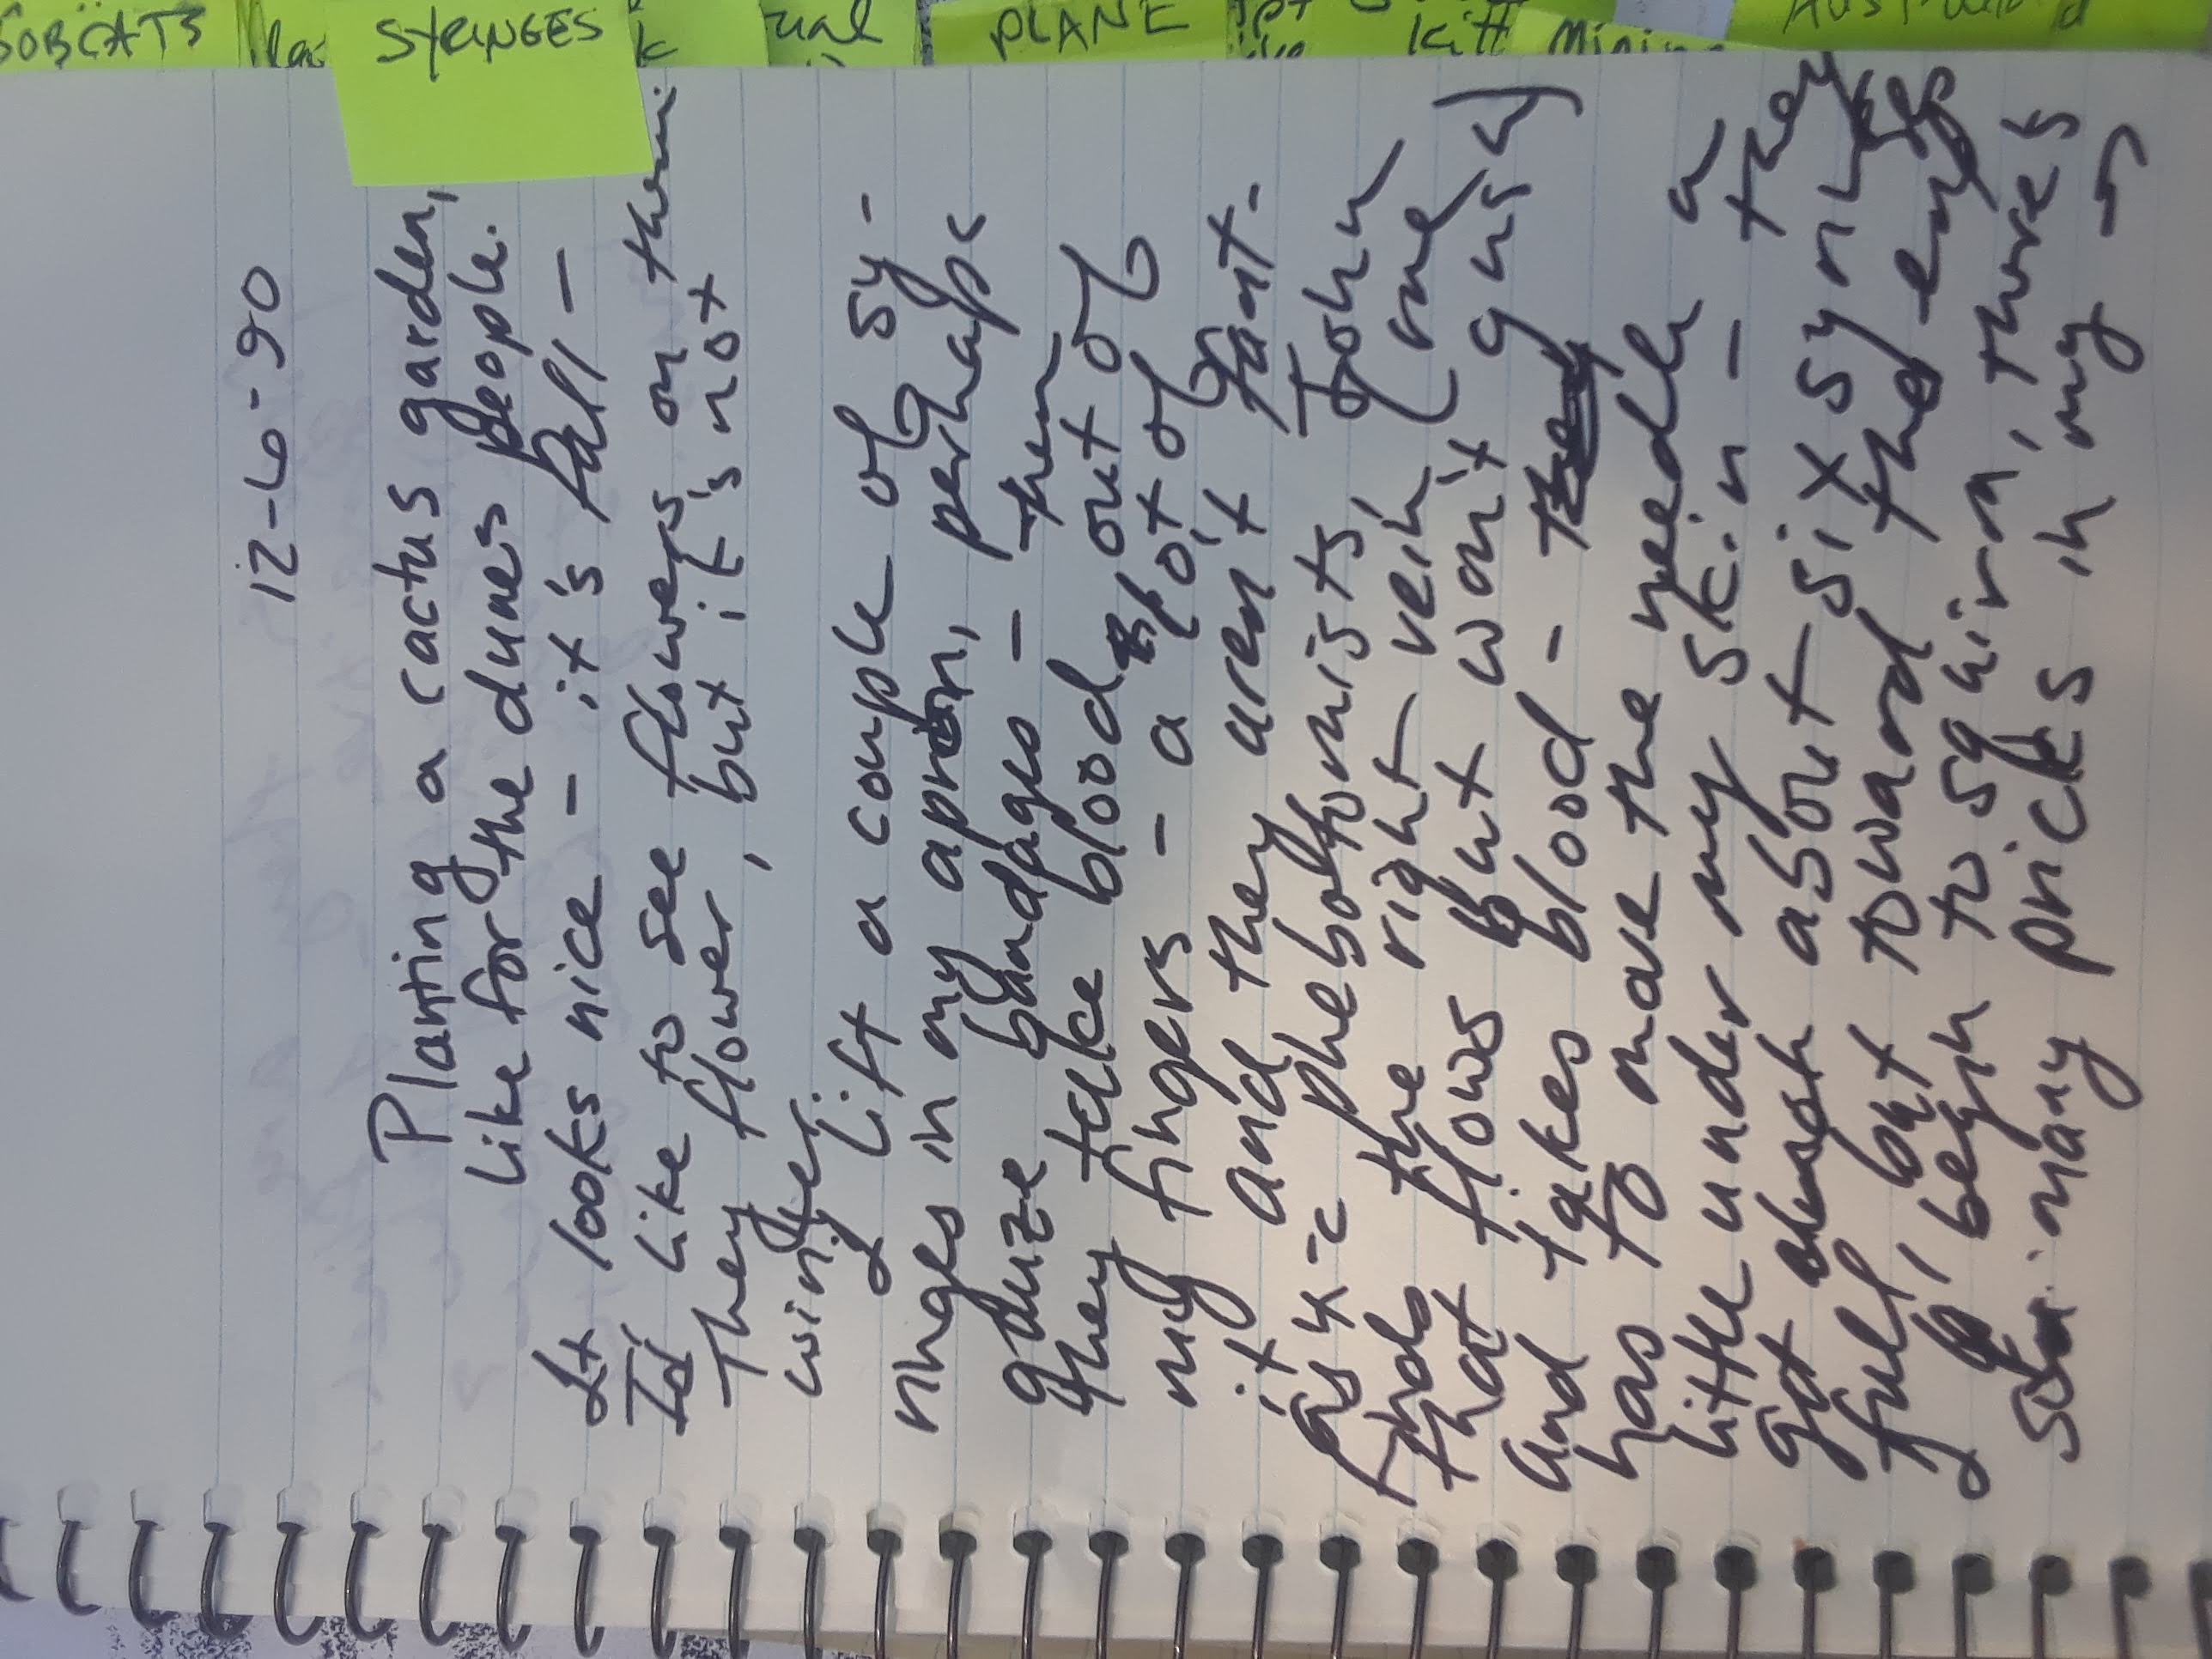 SYRINGES
PLANE
Kitt
12-6-90
Planting a cactus garden,
like for the dunes people.
It looks nice - it's fall -
I'd like to see flowers on them.
They flower, but it's not
winter
I lift a couple of sy-
ringes in my apron, perhaps
gauze bandages - then
they take blood out of
my fingers - a lot of
it and they aren't fant-
phebottomists, John
finds the right vein (one
that flows but won't gush)
and takes blood -
has to move the needle a
little under my skin - they
get about six syringes
full, but toward the end
I begin to squirm, theres
so many pricks in my